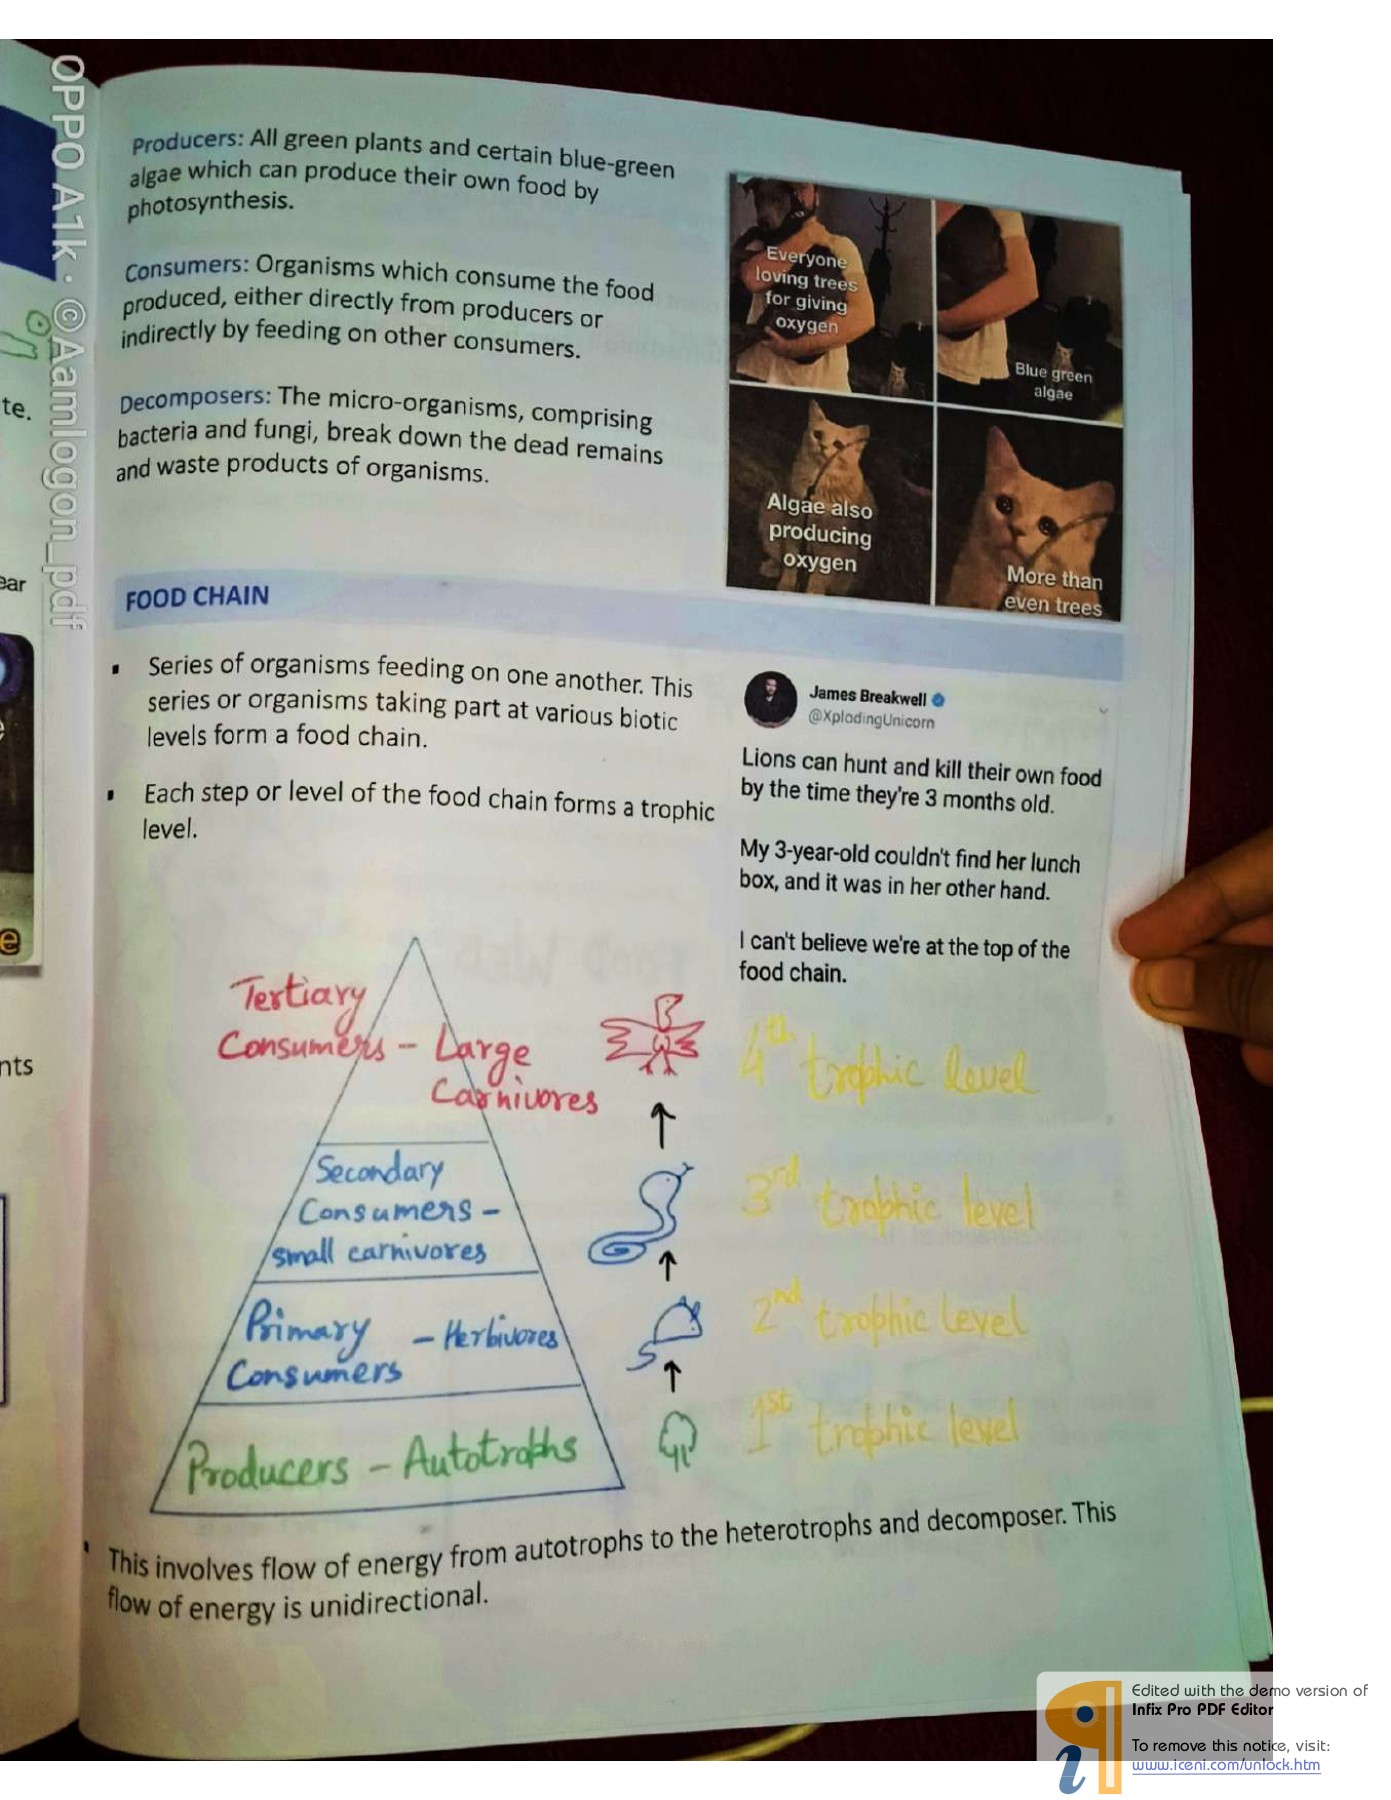 OPPO A1k · ©Aamlogon_pdf
te.
ear
e
nts
Producers: All green plants and certain blue-green
algae which can produce their own food by
photosynthesis.
Consumers: Organisms which consume the food
produced, either directly from producers or
indirectly by feeding on other consumers.
Decomposers: The micro-organisms, comprising
bacteria and fungi, break down the dead remains
and waste products of organisms.
Everyone
loving trees
for giving
oxygen
Blue green
algae
Algae also
producing
oxygen
More than
even trees
FOOD CHAIN
▪ Series of organisms feeding on one another. This
series or organisms taking part at various biotic
levels form a food chain.
▪ Each step or level of the food chain forms a trophic
level.
James Breakwell
@XplodingUnicorn
Lions can hunt and kill their own food
by the time they're 3 months old.
My 3-year-old couldn't find her lunch
box, and it was in her other hand.
I can't believe we're at the top of the
food chain.
Tertiary
Consumers - Large
Carnivores
4th trophic level
Secondary
Consumers -
small carnivores
3rd trophic level
Primary - Herbivores
Consumers
2nd trophic level
Producers - Autotrophs
1st trophic level
▪ This involves flow of energy from autotrophs to the heterotrophs and decomposer. This
flow of energy is unidirectional.
Edited with the demo version of
Infix Pro PDF Editor
To remove this notice, visit:
www.iceni.com/unlock.htm